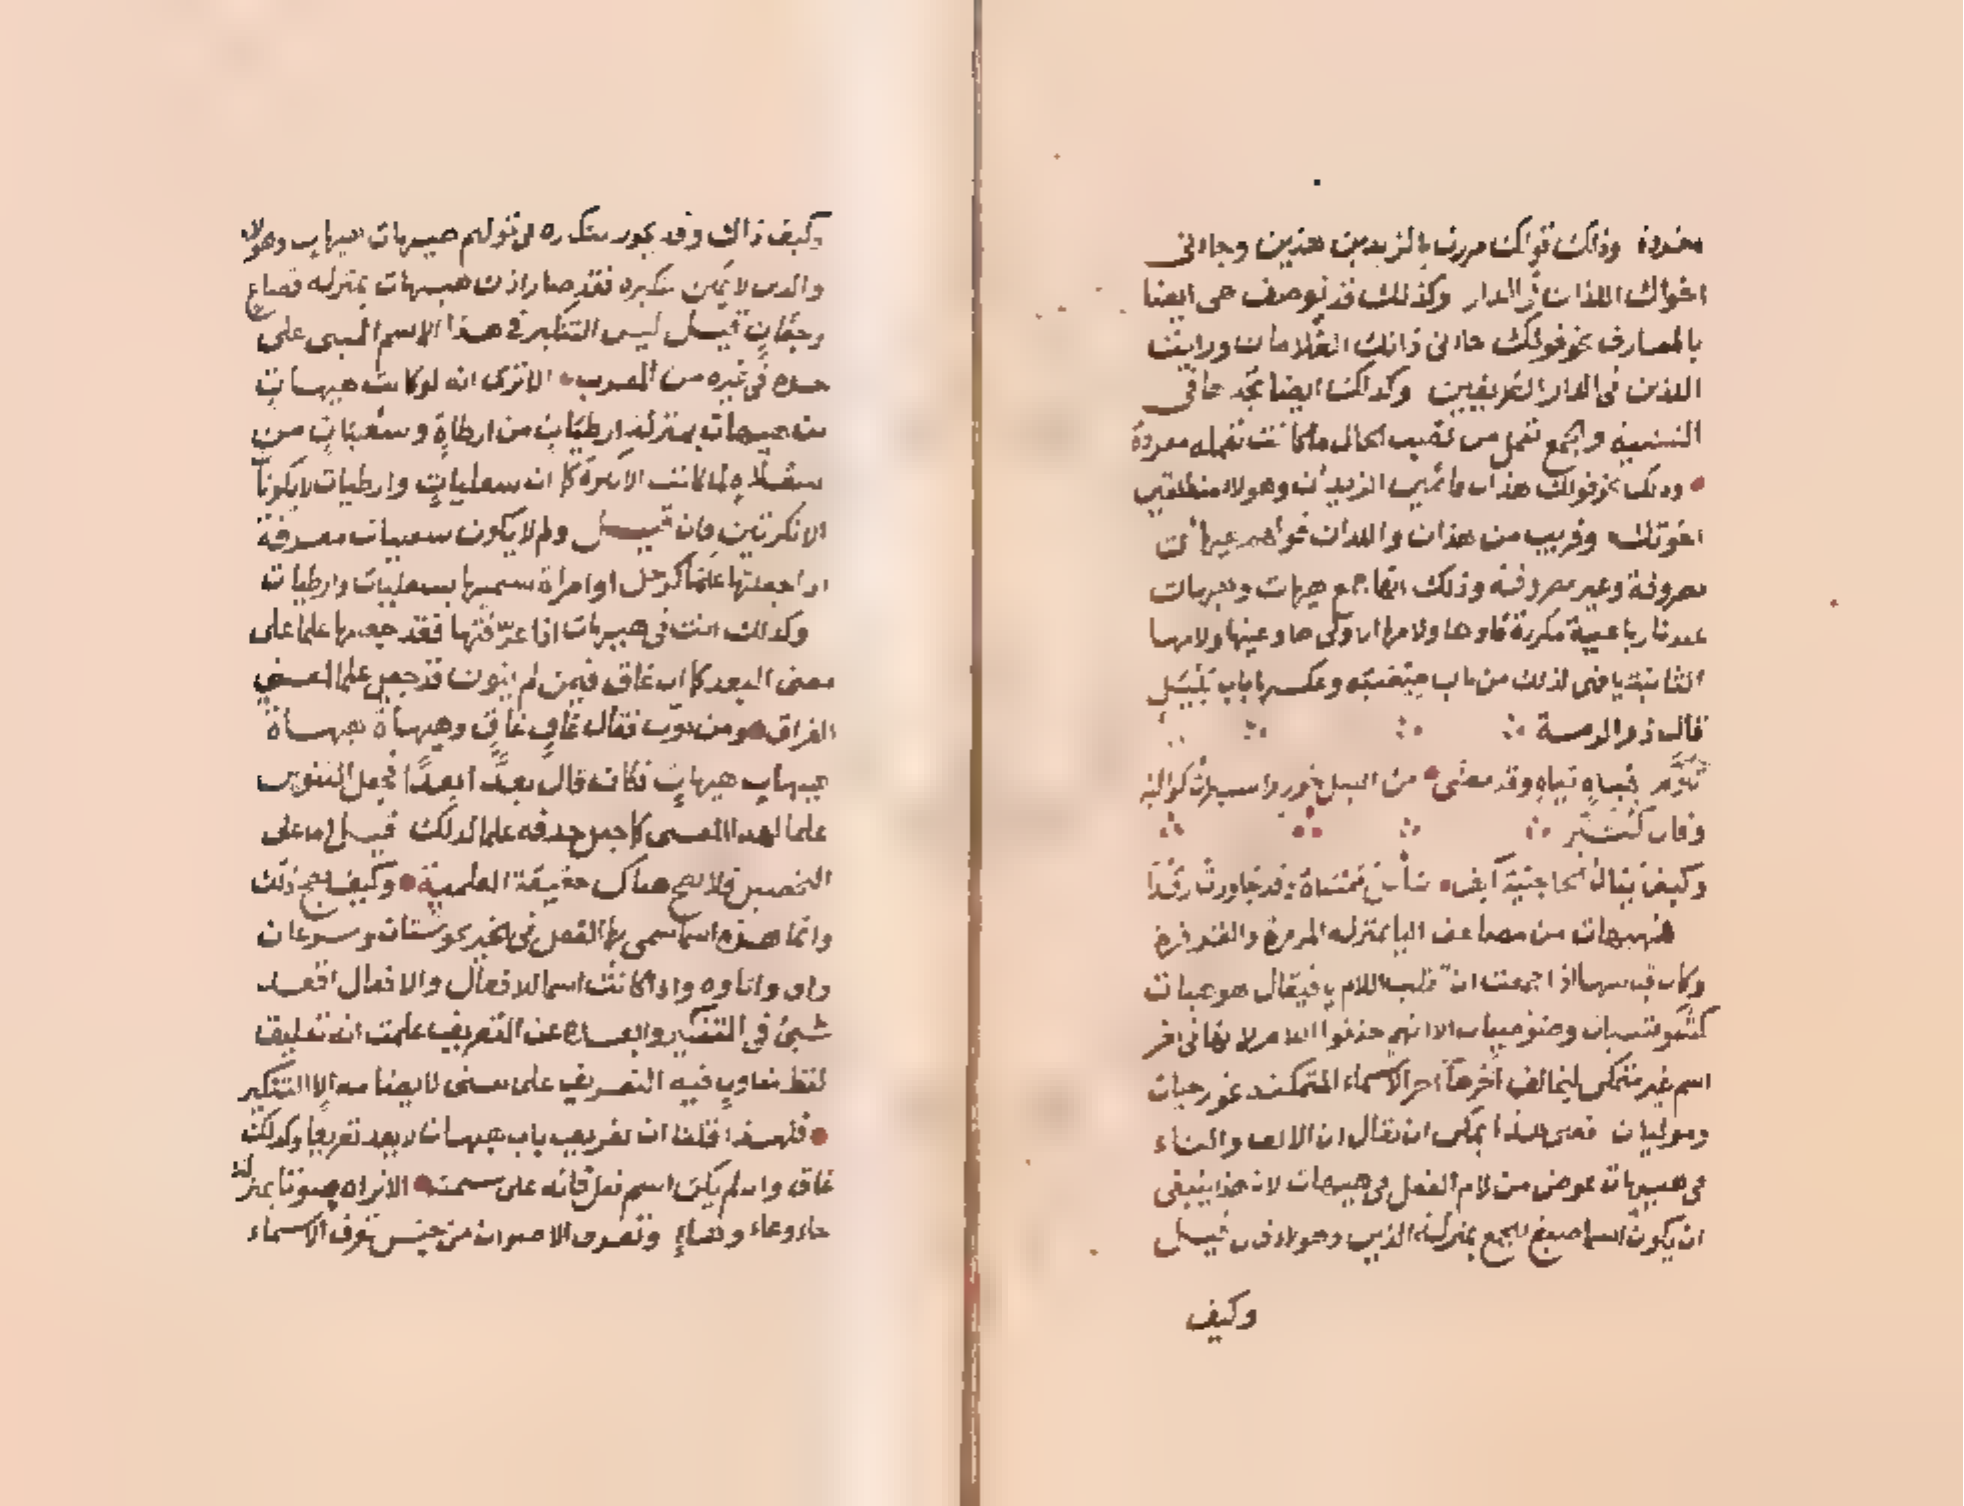 مفردة وذلك قولك مررت بالزيدين هذين وجاءني
اخواك اللذان في الدار وكذلك قد توصف هي ايضا
بالمعارف نحو قولك جاءني ذانك الغلامان ورايت
اللذين في الدار الظريفين وكذلك ايضا تجد حالهما في
التثنية والجمع تعمل من نصب الحال ما كانت تعمله مفردة
وذلك نحو قولك هذان قائمين الزيدان وهولاء منطلقين
اخوتك وقريب من هذان واللذان قولهم هيهات
مصروفة وغير مصروفة وذلك انها جمع هيهات وهيهات
عندنا رباعية مكررة فاوها ولامها الاولى هاء وعينها ولامها
الثانية ياء فهي لذلك من باب صيصية وعكسها باب يليل
قال ذو الرمة
تلوم يهياه بياه وقد مضى من الليل جوز واسبطرت كواكبه
وقال كثير
وكيف ينال الحاجبية آلف بيليل ممساه وقد جاوزت رقدا
فهيهات من مضاعف اليا بمنزلة المرمرة والقرقرة
وكان قياسها اذا جمعت ان تقلب اللام ياء فيقال هوهيات
كشوشيات وضوضيات الا انهم حذفوا اللام لانها في اخر
اسم غير متمكن ليخالف اخرها آخر الاسماء المتمكنة نحو رحيات
وموليان فعلى هذا يمكن ان يقال ان الالف والتاء
في هيهات عوض من لام الفعل في هيهات لان هذا ينبغي
ان يكون اسما صيغ للجمع بمنزلة الذين وهولاء فان قيل
وكيف
وكيف ذاك وقد يجوز تنكيره في قولهم هيهات هيهات وهولاء
والذين لا يمكن تنكيره فقد صار اذن هيهات بمنزلة قصاع
وجفان قيل ليس التنكير في هذا الاسم المبني على
حده في غيره من المعرب الا ترى انه لو كانت هيهات
من هيهات بمنزلة ارطيات من ارطاة وسعليات من
سعلاة لما كانت الا نكرة كما ان سعليات وارطيات لا يكونا
الا نكرتين فان قيل ولم لا يكون سعليات معرفة
اذا جعلتها علما كرجل او امراة سميتها بسعليات وارطيات
وكذلك انت في هيهات اذا عرفتها فقد جعلتها علما على
معنى البعد كما ان غاق فيمن لم ينون قد جعل علما لمعنى
الفراق ومن نون فقال غاق غاق وهيهاة هيهاة
هيهات هيهات فكانه قال بعدا بعدا فجعل التنوين
علما لهذا المعنى كما جعل حذفه علما لذلك قيل اما على
التحصيل فلا يصح هناك حقيقة العلمية وكيف يصح ذلك
وانما هذه اسما سمي بها الفعل في الخبر نحو شتان وسرعان
واف واتاوه واذا كانت اسما للافعال والافعال اقعد
شيئ في التنكير وابعده عن التعريف علمت انه تعليق
لفظ متاول فيه التعريف على معنى لا يضامه الا التنكير
فلهذا قلنا ان تعريف باب هيهات لا يعد تعريفا وكذلك
غاق وان لم يكن اسم فعل فانه على سمته الا تراه صوتا بمنزلة
حاء وعاء وهاء وتعرف الاصوات من جنس تعرف الاسماء